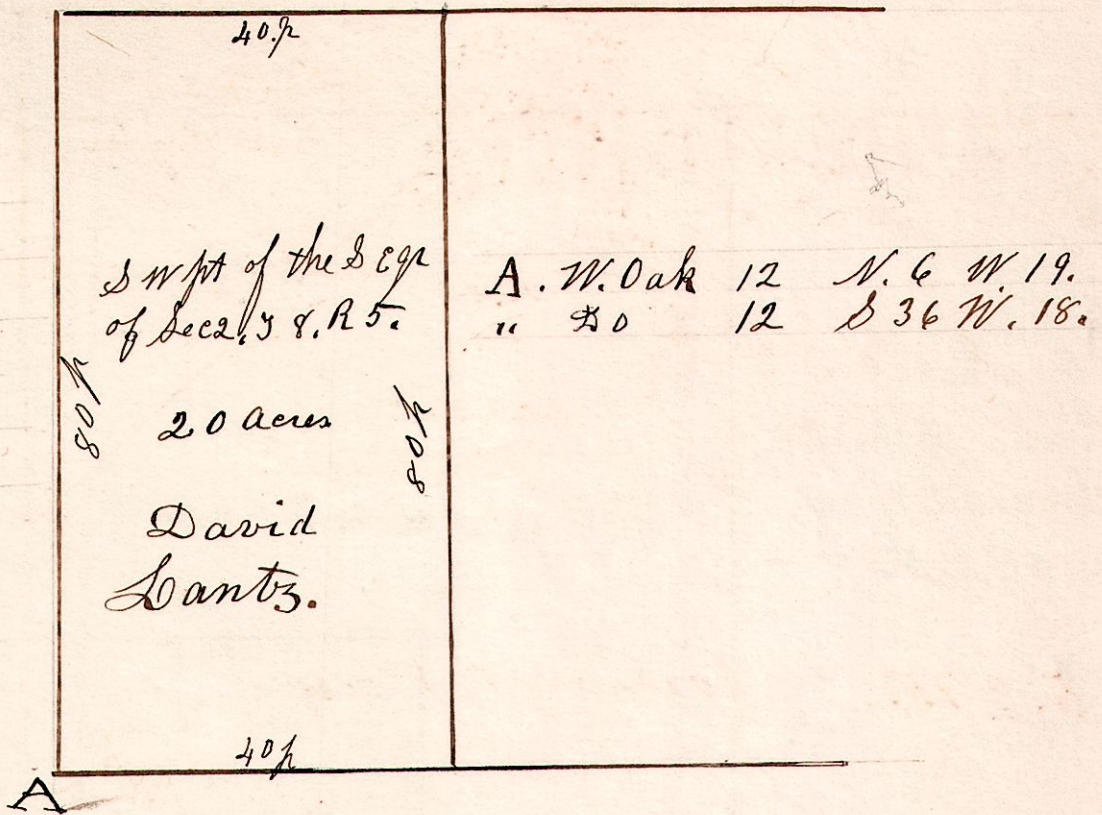 40.p
S W pt of the S E qr
of Sec 2. T 8. R 5.
80 p
80 p
20 Acres
David
Lantz.
40 p
A
A. W. Oak 12 N. 6 W. 19.
" Do 12 S 36 W. 18.